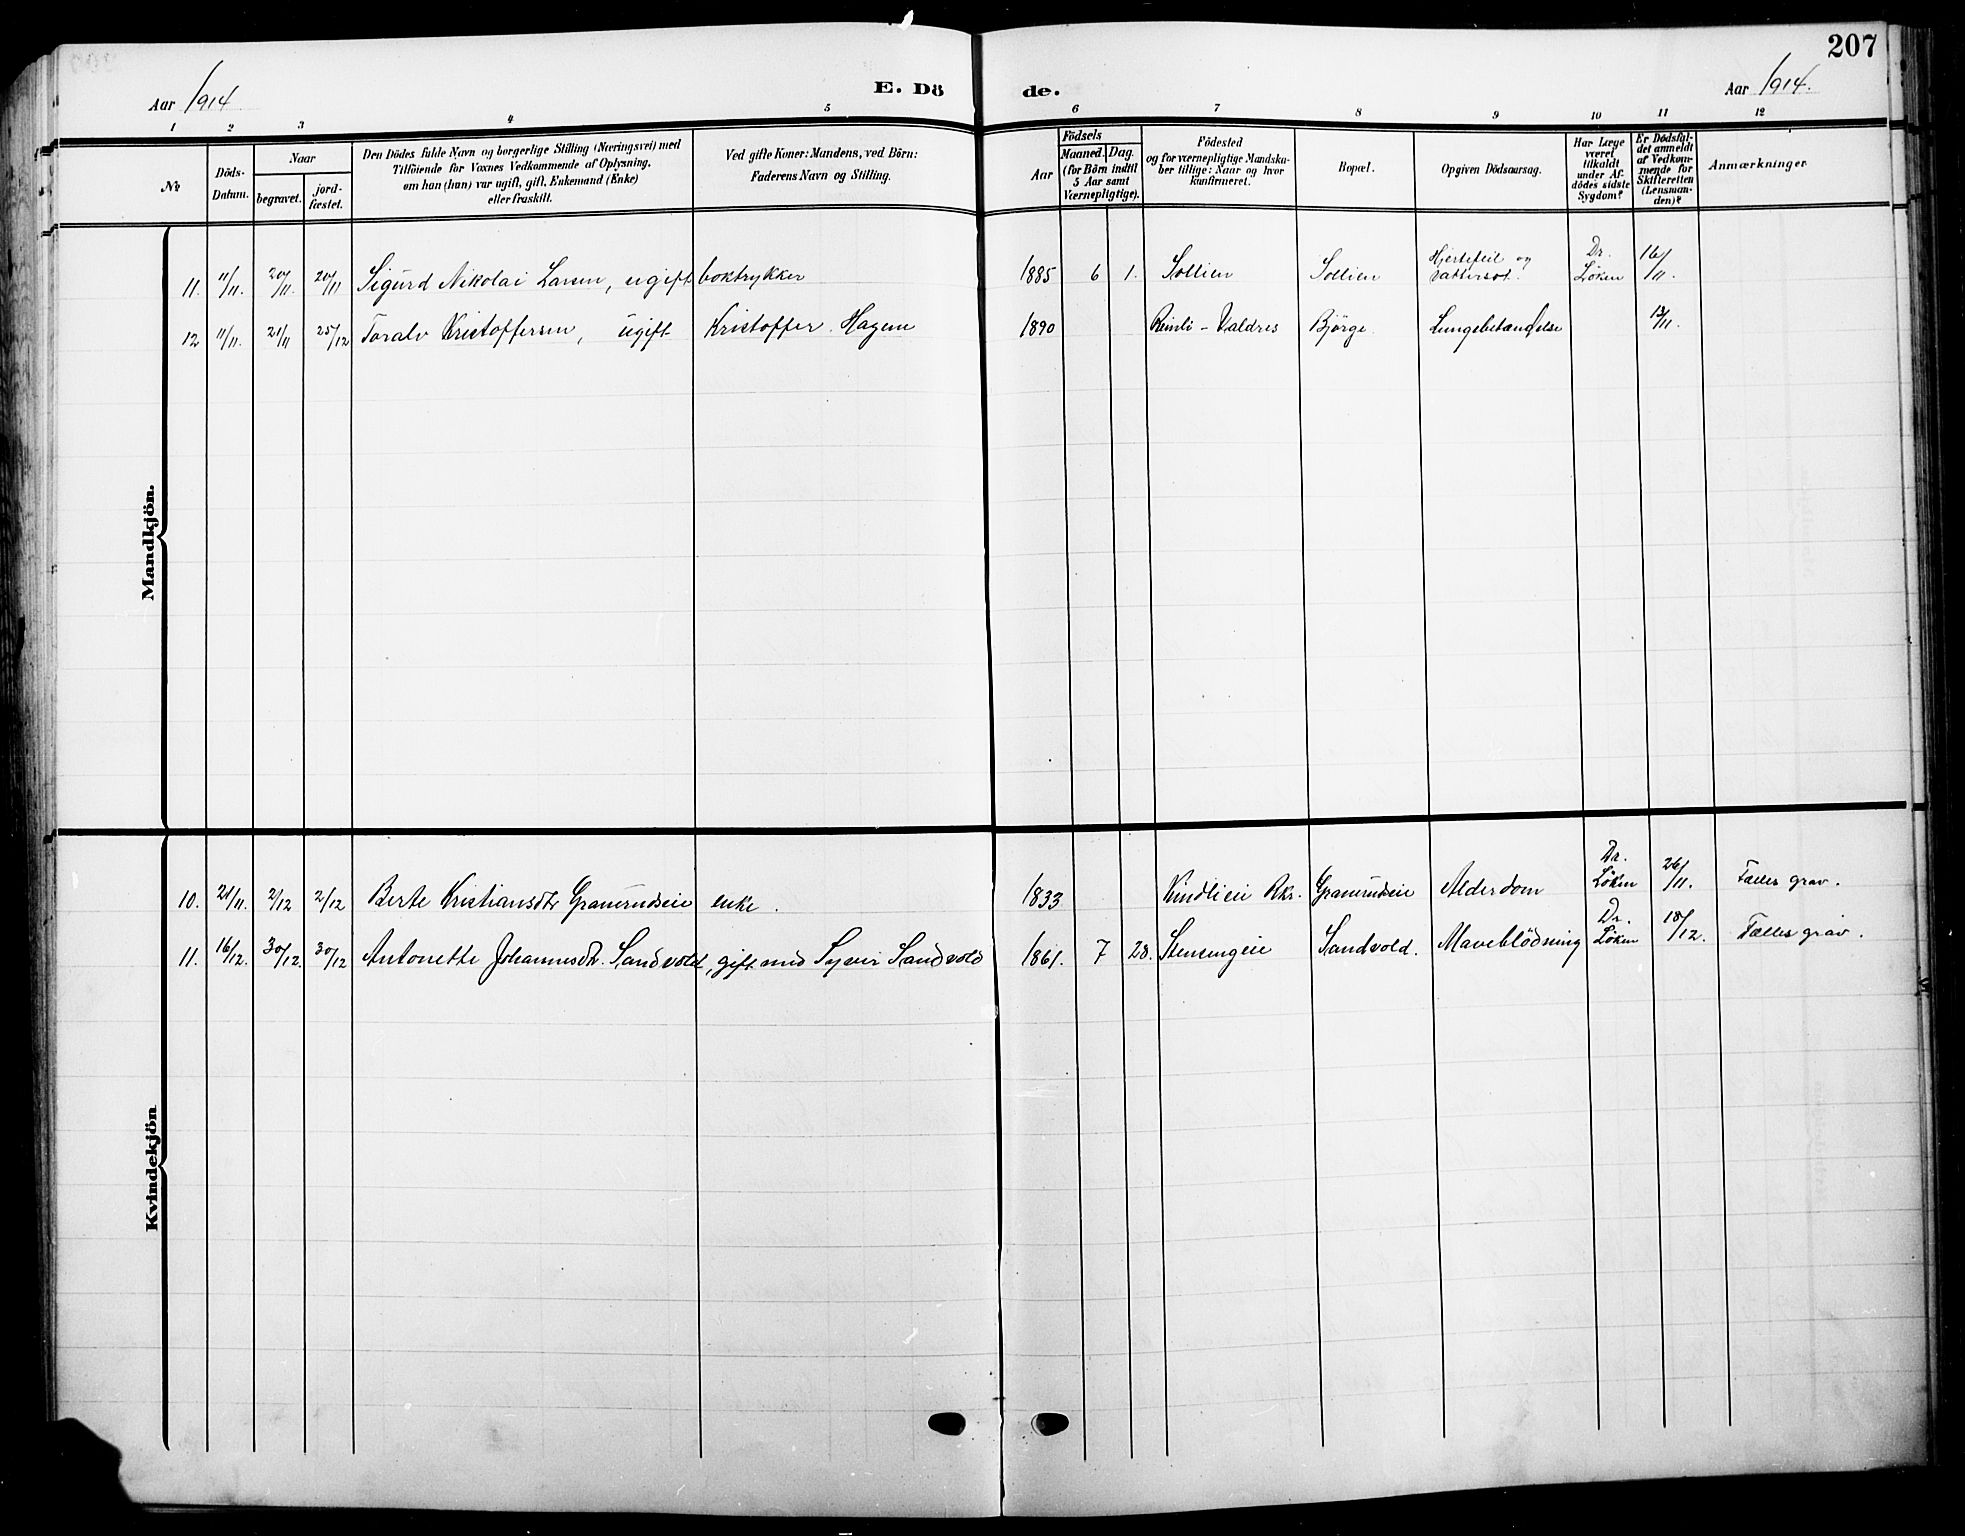 207
Aar 1914
E. Dö
de.
Aar 1914.
1 2 3 4 5 6 7 8 9 10 11 12
№
Döds-
Datum.
Naar
begravet.
jord-
fæstet.
Den Dödes fulde Navn og borgerlige Stilling (Næringsvei) med
Tilföiende for Voxnes Vedkommende af Oplysning,
om han (hun) var ugift, gift, Enkemand (Enke)
eller fraskilt.
Ved gifte Koner: Mandens, ved Börn:
Faderens Navn og Stilling.
Födsels
Aar
Maaned. Dag.
(for Börn indtil
5 Aar samt
Værnepligtige).
Födested
og for værnepligtige Mandska-
ber tillige: Naar og hvor
konfirmeret.
Bopæl.
Opgiven Dödsaarsag.
Har Læge
været
tilkaldt
under Af-
dödes sidste
Sygdom?
Er Dödsfal-
det anmeldt
af Vedkom-
mende for
Skifteretten
(Lensman-
den)?
Anmærkninger
Mandkjön.
11. 11/11. 20/11. 20/11 Sigurd Nikolai Larsen, ugift boktrykker 1885 6 1. Sollien Sollien Hjertefeil og vattersot. Dr. Løken 16/11.
12 11/11. 21/11 25/12 Toralv Kristoffersen, ugift Kristoffer Hagene 1890 Reinli - Valdres Björge. Lungebetændelse 13/11.
Kvindekjön
10. 21/11. 2/12 2/12 Berte Kristiansdtr Granerudseie enke. 1833 Kindlieie Rkr. Granerudseie Alderdom Dr. Løken 26/11. Fælles grav.
11. 16/12. 30/12. 30/12 Antonette Johannesdtr. Sandvold, gift med Syver Sandvold 1861. 7 28. Stensengeie Sandvold. Maveblödning Dr. Løken 18/12. Fælles grav.